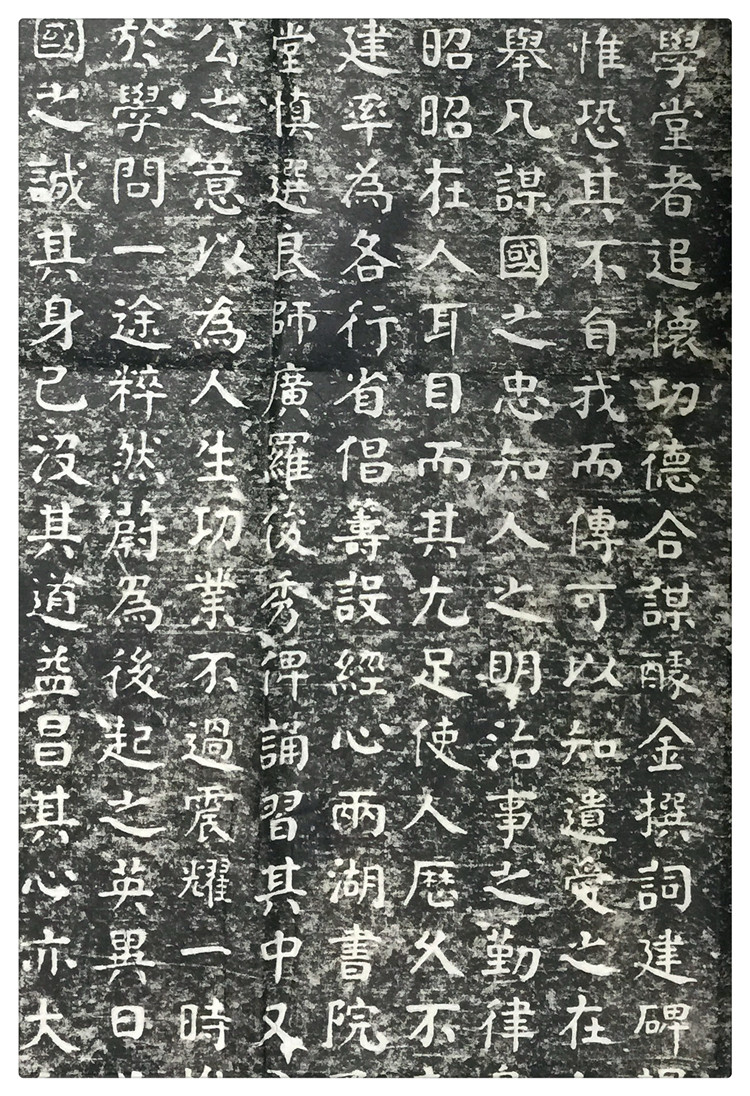 學堂者追懷功德合謀醵金撰詞建碑
惟恐其不自我而傳可以知遺愛之在
舉凡謀國之忠知人之明治事之勤律
昭昭在人耳目而其尤足使人歷久不
建率為各行省倡籌設經心兩湖書院
堂慎選良師廣羅俊秀俾誦習其中又
公之意以為人生功業不過震耀一時
於學問一途粹然蔚為後起之英異日
國之誠其身已沒其道益昌其心亦大